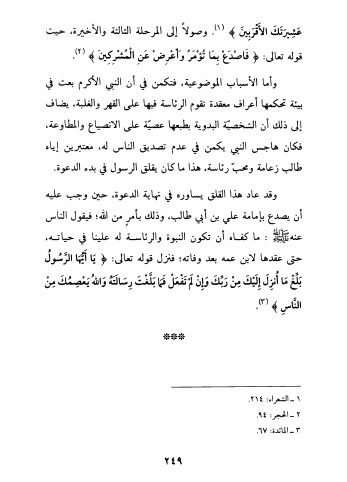 عَشِيرَتَكَ الأَقْرَبِينَ ﴾ (١). وصولاً إلى المرحلة الثالثة والأخيرة، حيث
قوله تعالى: ﴿ فَاصْدَعْ بِمَا تُؤْمَرُ وَأَعْرِضْ عَنِ الْمُشْرِكِينَ ﴾ (٢).
وأما الأسباب الموضوعية، فتكمن في أن النبي الأكرم بعث في
بيئة تحكمها أعراف معقدة تقوم الرئاسة فيها على القهر والغلبة، يضاف
إلى ذلك أن الشخصيّة البدوية بطبعها عصيّة على الانصياع والمطاوعة،
فكان هاجس النبي يكمن في عدم تصديق الناس له، معتبرين إياه
طالب زعامة ومحبّ رئاسة، هذا ما كان يقلق الرسول في بدء الدعوة.
وقد عاد هذا القلق يساوره في نهاية الدعوة، حين وجب عليه
أن يصدع بإمامة علي بن أبي طالب، وذلك بأمرٍ من الله؛ فيقول الناس
عنه ﷺ: ما كفاه أن تكون النبوة والرئاسة له علينا في حياته،
حتى عقدها لابن عمه بعد وفاته؛ فنزل قوله تعالى: ﴿ يَا أَيُّهَا الرَّسُولُ
بَلِّغْ مَا أُنزِلَ إِلَيْكَ مِنْ رَبِّكَ وَإِنْ لَمْ تَفْعَلْ فَمَا بَلَّغْتَ رِسَالَتَهُ وَاللهُ يَعْصِمُكَ مِنَ
النَّاسِ ﴾ (٣).
***
١ - الشعراء: ٢١٤.
٢ - الحجر: ٩٤.
٣ - المائدة: ٦٧.
٢٤٩